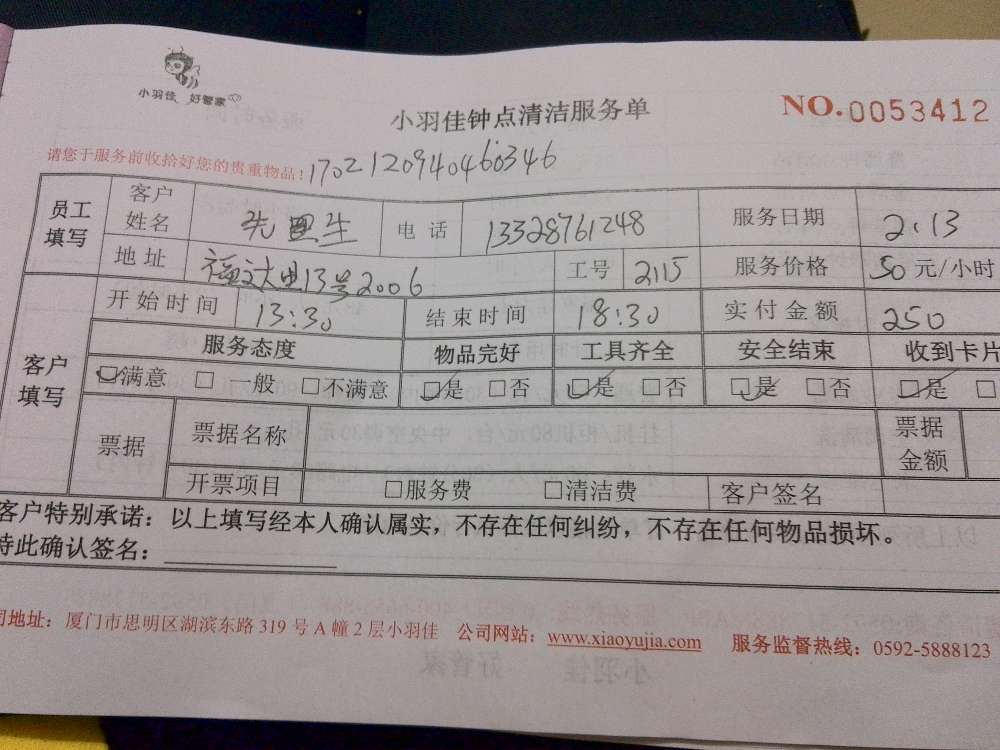 小羽佳 好管家
小羽佳钟点清洁服务单
NO.0053412
请您于服务前收拾好您的贵重物品！1702120940460346
员工填写 客户姓名 先生 电话 13328761248 服务日期 2.13
地址 13号2006 工号 2115 服务价格 50元/小时
客户填写 开始时间 13:30 结束时间 18:30 实付金额 250
服务态度 物品完好 工具齐全 安全结束 收到卡片
☑满意 □一般 □不满意 ☑是 □否 ☑是 □否 ☑是 □否 ☑是 □
票据 票据名称 票据金额
开票项目 □服务费 □清洁费 客户签名
客户特别承诺：以上填写经本人确认属实，不存在任何纠纷，不存在任何物品损坏。
特此确认签名：
司地址：厦门市思明区湖滨东路319号A幢2层小羽佳 公司网站：www.xiaoyujia.com 服务监督热线：0592-5888123